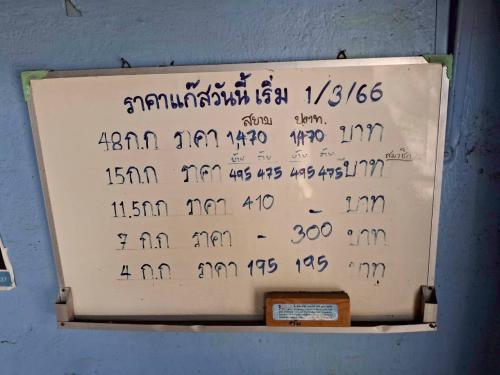 ราคาแก๊สวันนี้ เริ่ม 1/3/66
สยาม ปตท.
48ก.ก ราคา 1470 1470 บาท
บ้าน ร้าน บ้าน ร้าน สมาชิก
15ก.ก ราคา 495 475 495 475 บาท
11.5ก.ก ราคา 410 - บาท
7 ก.ก ราคา - 300 บาท
4 ก.ก ราคา 195 195 บาท